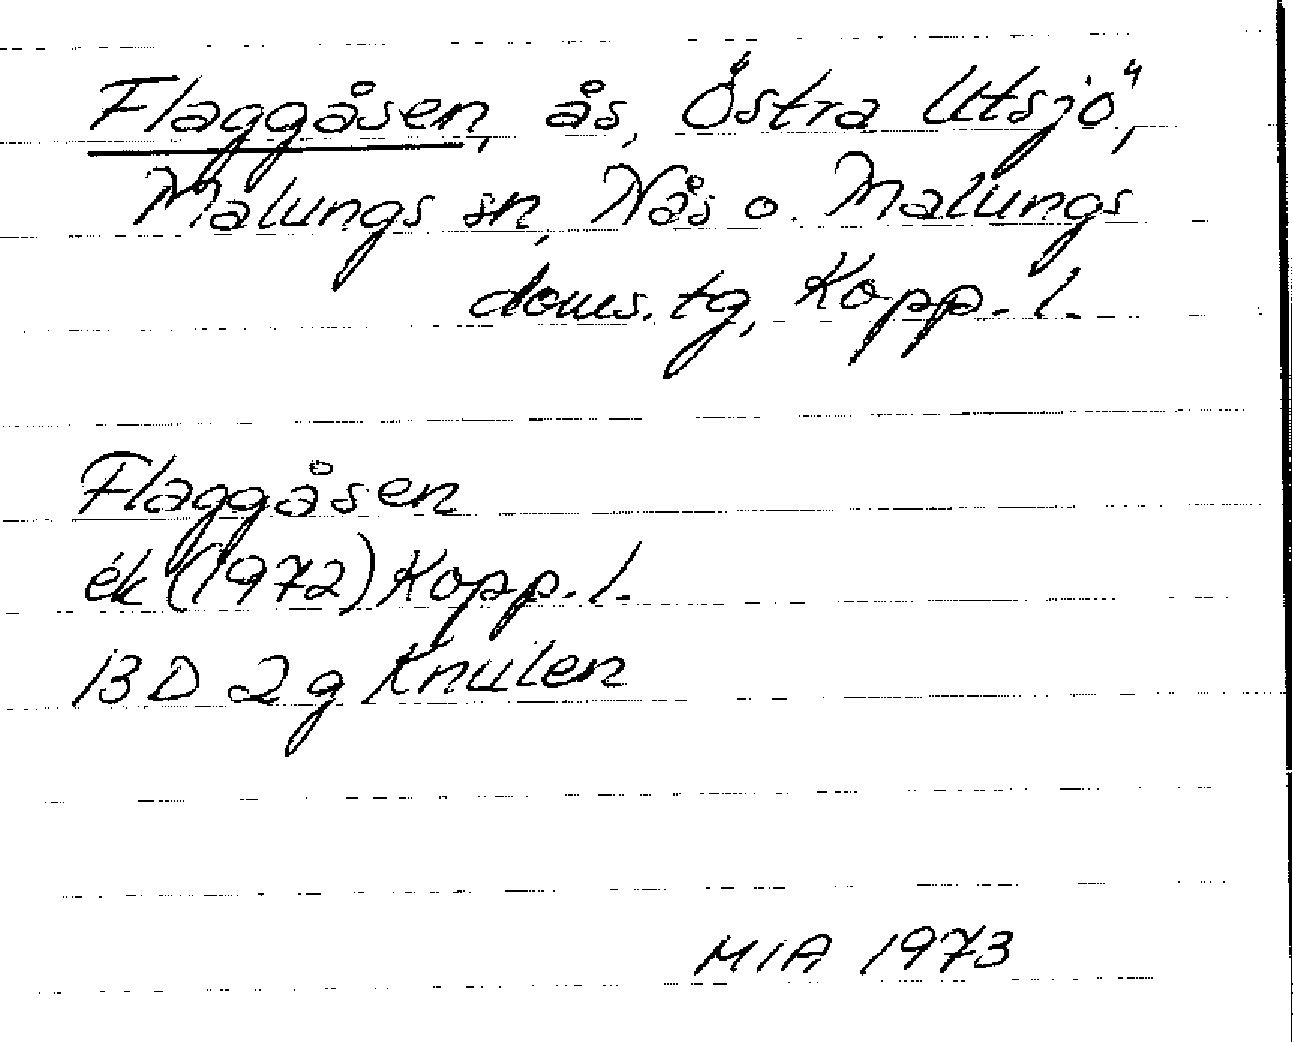 Flaggåsen, ås, Östra Utsjö,
Malungs sn, Nås o. Malungs
doms. tg, Kopp. l.
Flaggåsen
ek (1972) Kopp. l.
13 D 2 g Knulen
MIA 1973